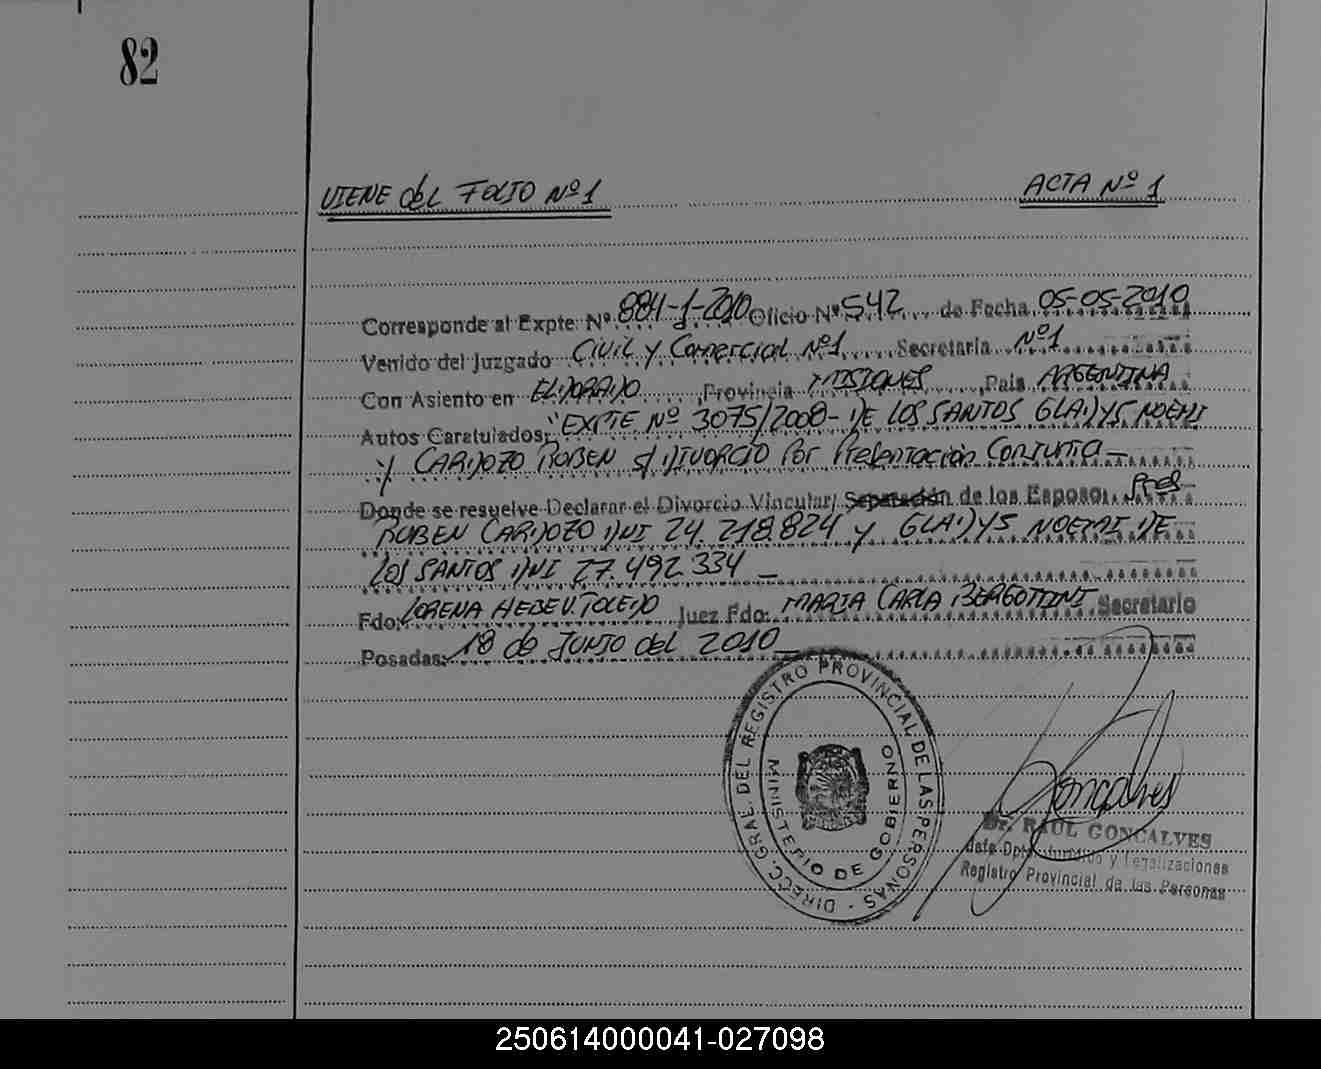 82
VIENE del FOLIO Nº 1
ACTA Nº 1
Corresponde al Expte Nº 884-1-2010 Oficio Nº 542 de Fecha 05-05-2010
Venido del Juzgado Civil y Comercial Nº1 Secretaria Nº1
Con Asiento en ELDORADO Provincia MISIONES Pais ARGENTINA
Autos Caratulados: "EXPTE Nº 3075/2008- DE LOS SANTOS GLADYS NOEMI
Y CARDOZO RUBEN s/ DIVORCIO Por Presentación Conjunta—
Donde se resuelve Declarar el Divorcio Vincular/ Separación de los Esposos Sres
RUBEN CARDOZO DNI 24.218.824 y GLADYS NOEMI DE
LOS SANTOS DNI 27.492.334 —
Fdo: LORENA HEBE V. TOLEDO Juez Fdo: MARIA CARLA BERGOTTINI Secretario
Posadas: 18 de JUNIO del 2010—
DIRECC. GRAL. DEL REGISTRO PROVINCIAL DE LAS PERSONAS -
MINISTERIO DE GOBIERNO
Goncalves
Dr. RAUL GONCALVES
Jefe Dpto. Jurídico y Legalizaciones
Registro Provincial de las Personas
250614000041-027098